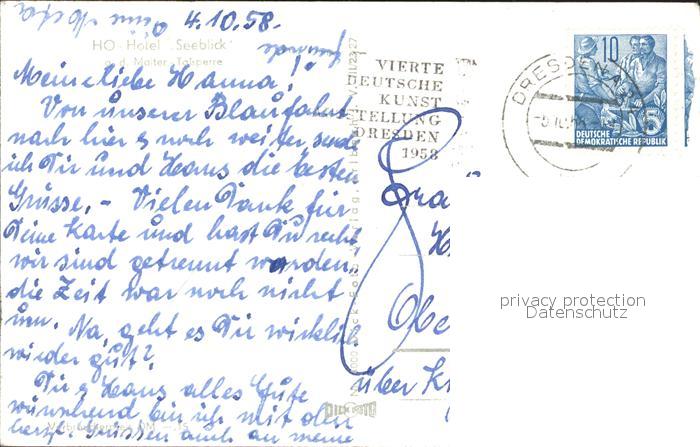 4.10.58.
HO-Hotel "Seeblick"
a. d. Malter-Talsperre
Meine liebe Hanna!
Von unserer Blaufahrt
nach hier & noch weiter send
ich Dir und Hans die besten
Grüsse. - Vielen Dank für
Deine Karte und hast Du recht
wir sind getrennt worden,
die Zeit war noch nicht
um. Na, geht es Dir wirklich
wieder gut?
Dir & Hans alles Gute
wünschend bin ich mit den
herzl. Grüssen auch an meine
VIERTE
DEUTSCHE
KUNST
STELLUNG
DRESDEN
1958
DRESDEN
10
5
DEUTSCHE
DEMOKRATISCHE REPUBLIK
Obe
über K
privacy protection
Datenschutz